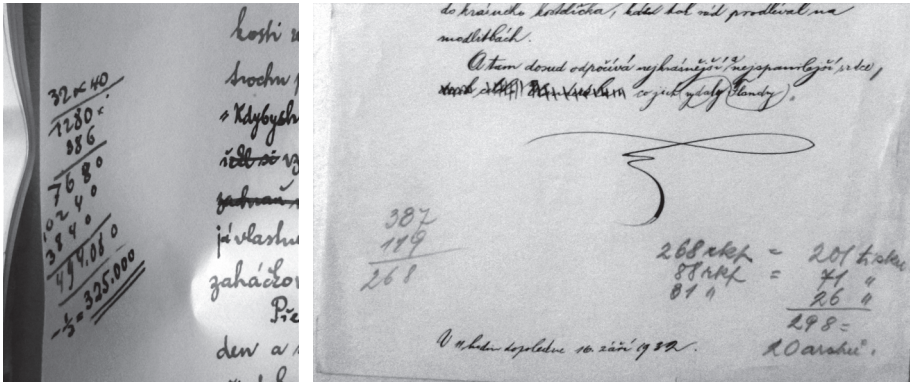 32 × 40
1280 ×
386
7680
10240
3840
494.080
- ⅓ = 325.000
kosti
trochu
"Kdybych
já vlastn
zaháčko
Pře
den a
do krásného kostelíčka, kde tol rád prodléval na
modlitbách.
A tam dosud odpočívá nejkrásnější, nejspanilejší srdce,
co jich vydaly Flandry.
387
119
268
268 rkp = 201 tisku
88 rkp = 71 "
31 " 26 "
298 =
20 archů.
dopoledne 16. září 1932.